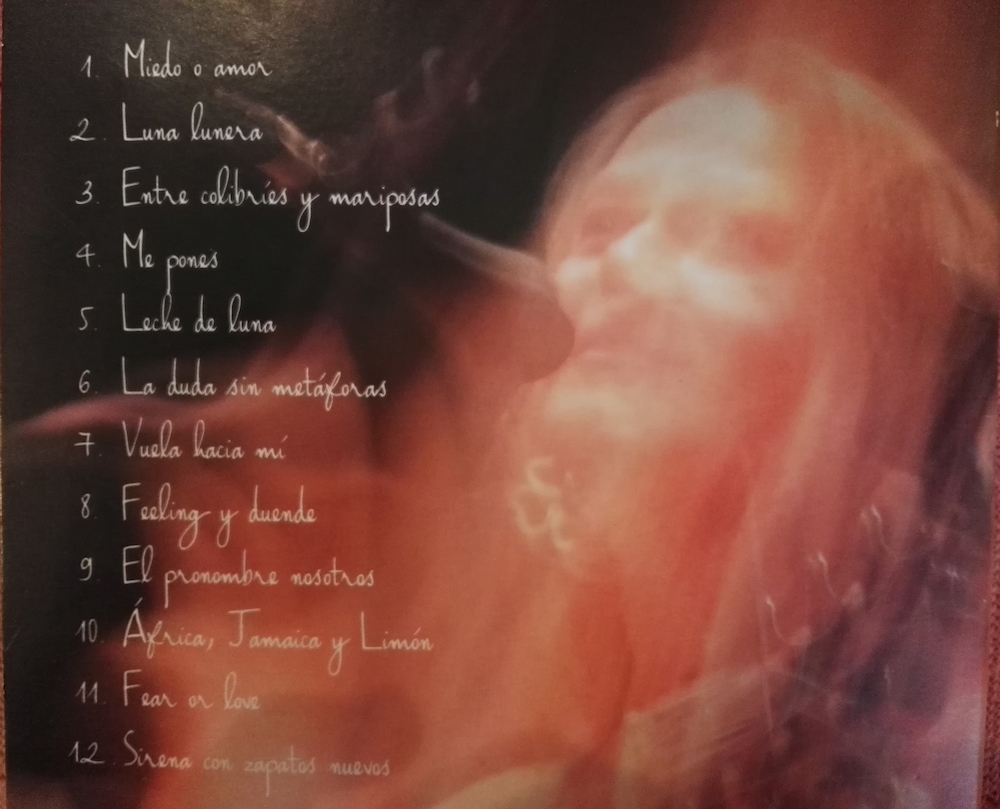 1. Miedo o amor
2. Luna lunera
3. Entre colibríes y mariposas
4. Me pones
5. Leche de luna
6. La duda sin metáforas
7. Vuela hacia mí
8. Feeling y duende
9. El pronombre nosotros
10. África, Jamaica y Limón
11. Fear or love
12. Sirena con zapatos nuevos